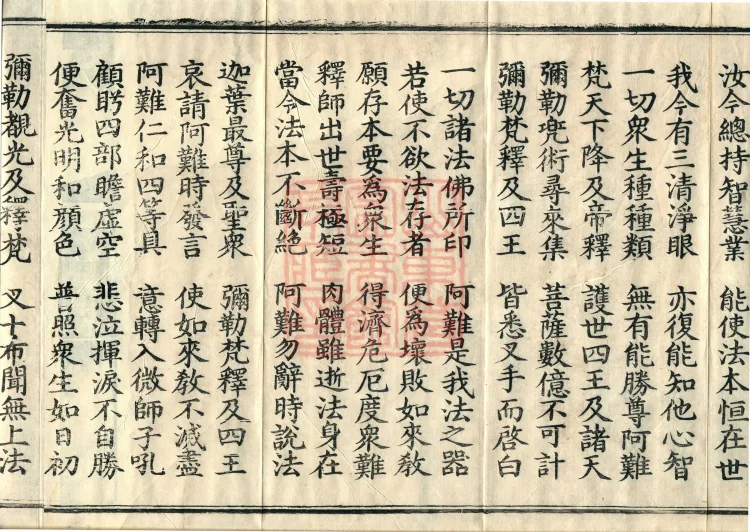 汝今總持智慧業　能使法本恒在世
我今有三清淨眼　亦復能知他心智
一切衆生種種類　無有能勝尊阿難
梵天下降及帝釋　護世四王及諸天
彌勒兜術尋來集　菩薩數億不可計
彌勒梵釋及四王　皆悉叉手而啓白
一切諸法佛所印　阿難是我法之器
若使不欲法存者　便爲壞敗如來教
願存本要爲衆生　得濟危厄度衆難
釋師出世壽極短　肉體雖逝法身在
當令法本不斷絶　阿難勿辭時說法
迦葉最尊及聖衆　彌勒梵釋及四王
哀請阿難時發言　使如來教不滅盡
阿難仁和四等具　意轉入微師子吼
顧眄四部瞻虛空　悲泣揮淚不自勝
便奮光明和顏色　普照衆生如日初
彌勒覩光及釋梵　叉十布聞無上法